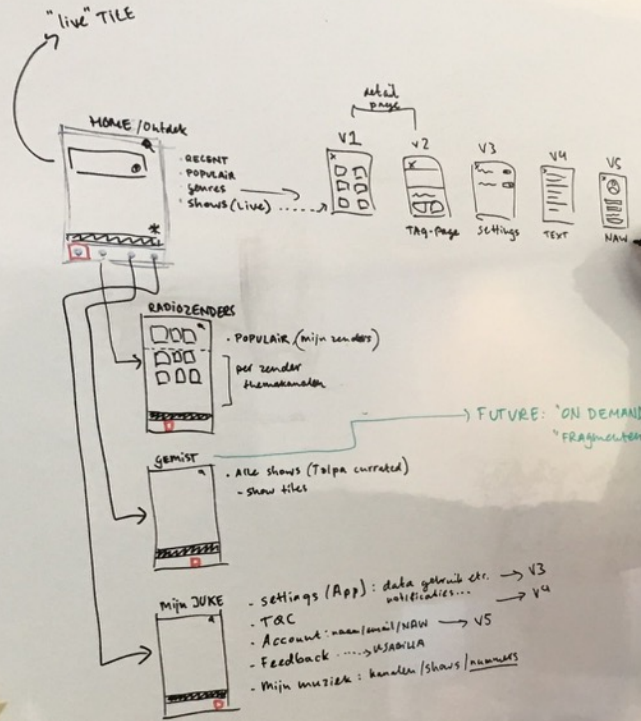 "live" TILE
HOME / Ontdek
· RECENT
· POPULAIR
· genres
· shows (Live)
detail
page
V1
V2
V3
V4
V5
TAG-page
settings
TEXT
NAW
RADIOZENDERS
· POPULAIR (mijn zenders)
per zender
themakanalen
GEMIST
→ FUTURE: "ON DEMAND
"FRAGMENTEN
· Alle shows (Talpa currated)
- show tiles
Mijn JUKE
- settings (App): data gebruik etc. → V3
notificaties... → V4
- T&C
- Account: naam/email/NAW → V5
- Feedback ....→ USABILLA
- Mijn muziek: kanalen/shows/nummers